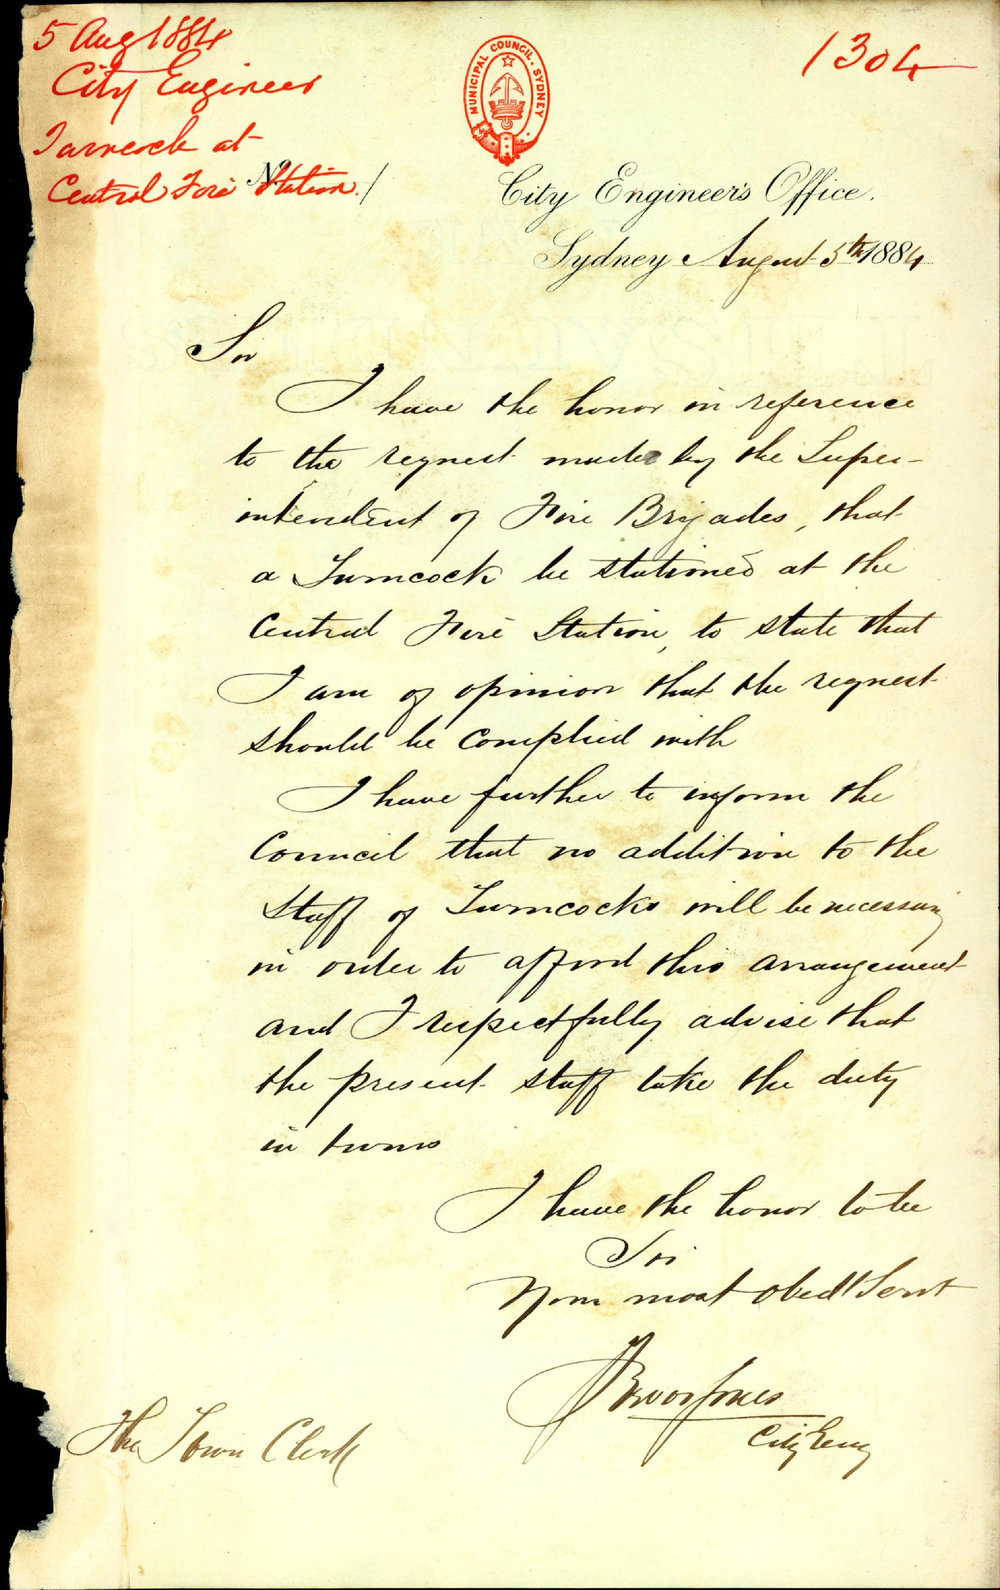 5 Aug 1884
City Engineer
Turncock at
Central Fire Station.
1304
MUNICIPAL COUNCIL. SYDNEY
No /
City Engineer's Office.
Sydney August 5th 1884
Sir
I have the honor in reference
to the request made by the Super-
intendent of Fire Brigades, that
a Turncock be stationed at the
Central Fire Station, to state that
I am of opinion that the request
should be complied with
I have further to inform the
Council that no addition to the
Staff of Turncocks will be necessary
in order to afford this arrangement
and I respectfully advise that
the present staff take the duty
in turns
I have the honor to be
Sir
Your most obedt Servt
City Eng
The Town Clerk